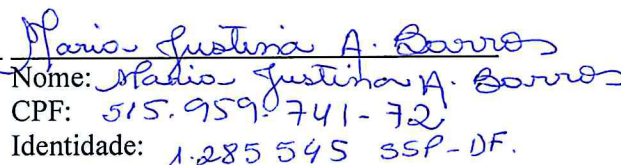 Maria Justina A. Barros
Nome: Maria Justina A. Barros
CPF: 515.959.741-72
Identidade: 1.285545 SSP-DF.